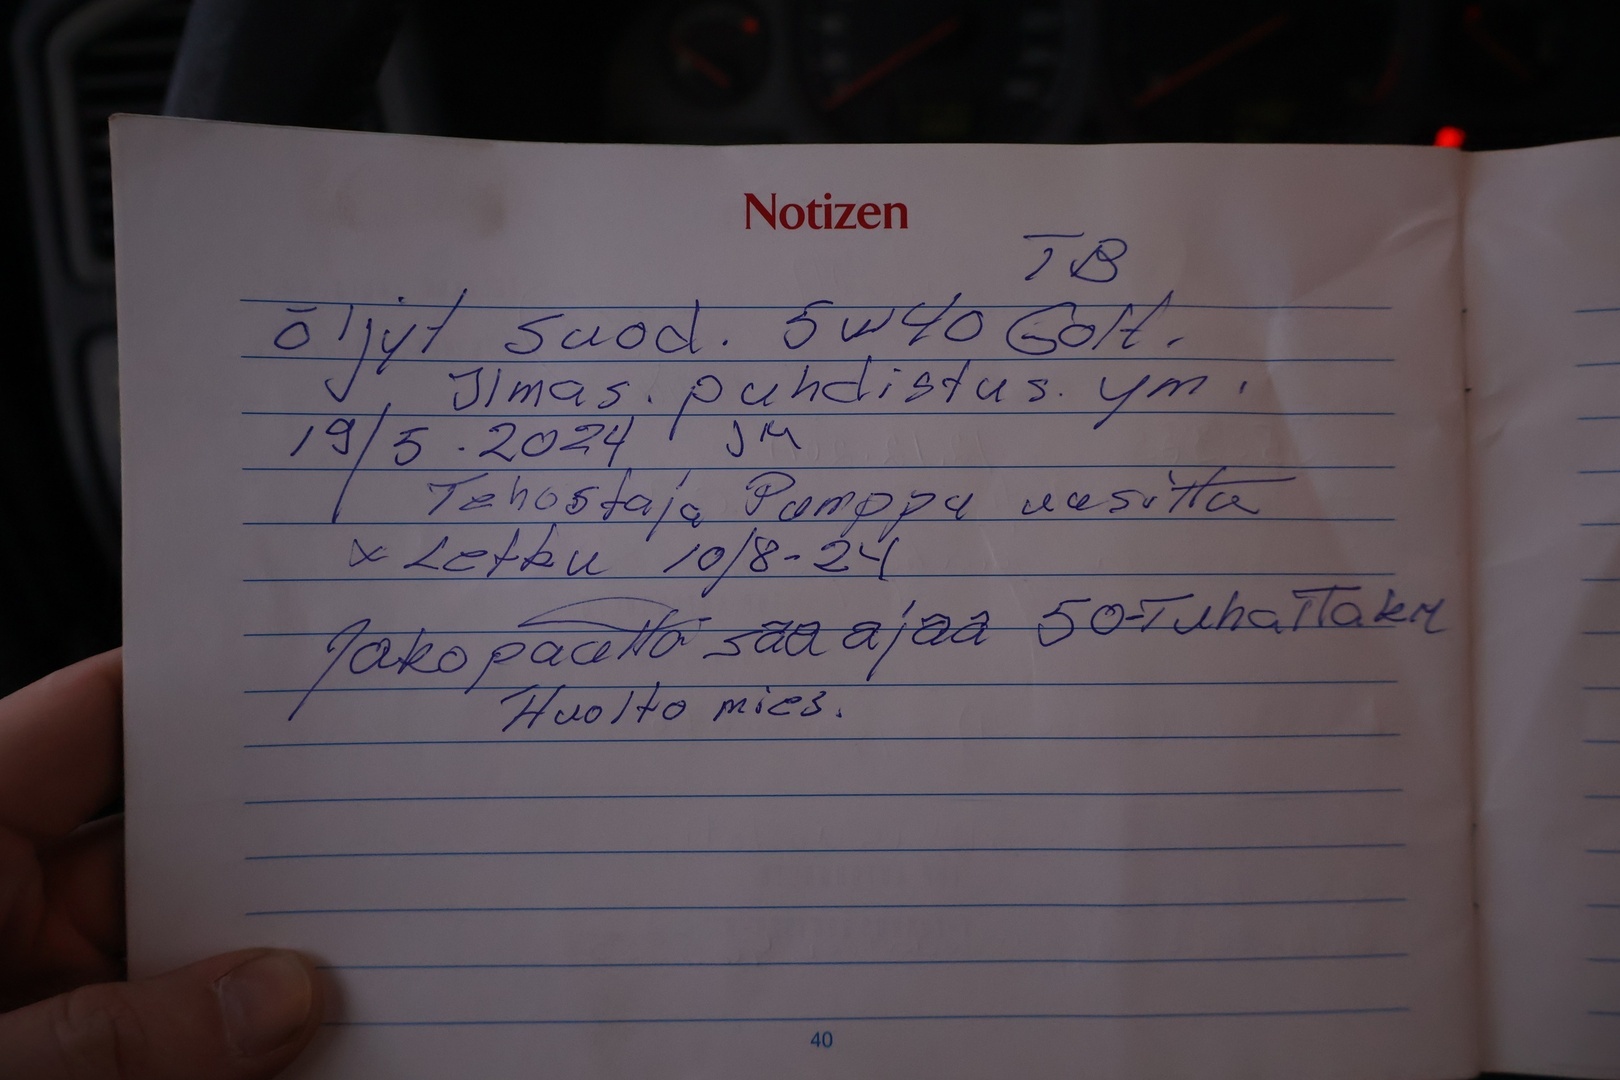 Notizen
TB
öljyt suod. 5w40 Golt.
Ilmas. puhdistus. ym.
19/5.2024 JM
Tehostaja Pumppu uusittu
x Letku 10/8-24
Jakopäätä sää ajaa 50-Tuhatta km
Huolto mies.
40